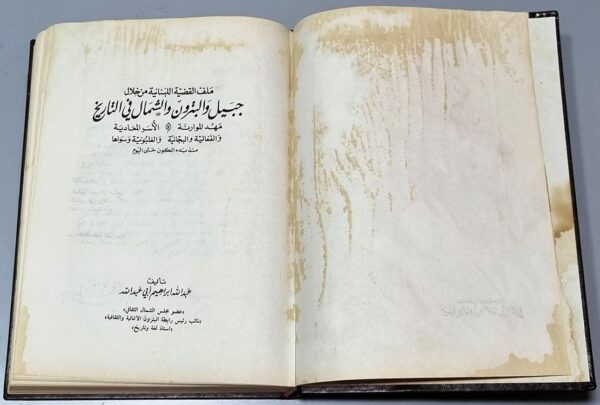 ملف القضية اللبنانية من خلال
جبيل والبترون والشمال في التاريخ
مهد الموارنة الأسر المعادية
والفغالية والبجانية والغلبونية وسواها
منذ بدء الكون حتى اليوم
تأليف
عبدالله ابراهيم أبي عبدالله
«عضو مجلس الشمال الثقافي»
«نائب رئيس رابطة البترون الانمائية والثقافية»
«استاذ لغة وتاريخ»